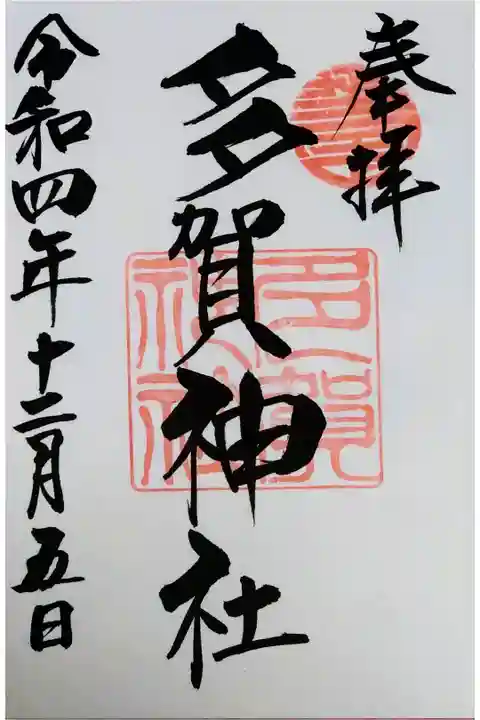 奉拝
多賀神社
多賀神社
令和四年十二月五日